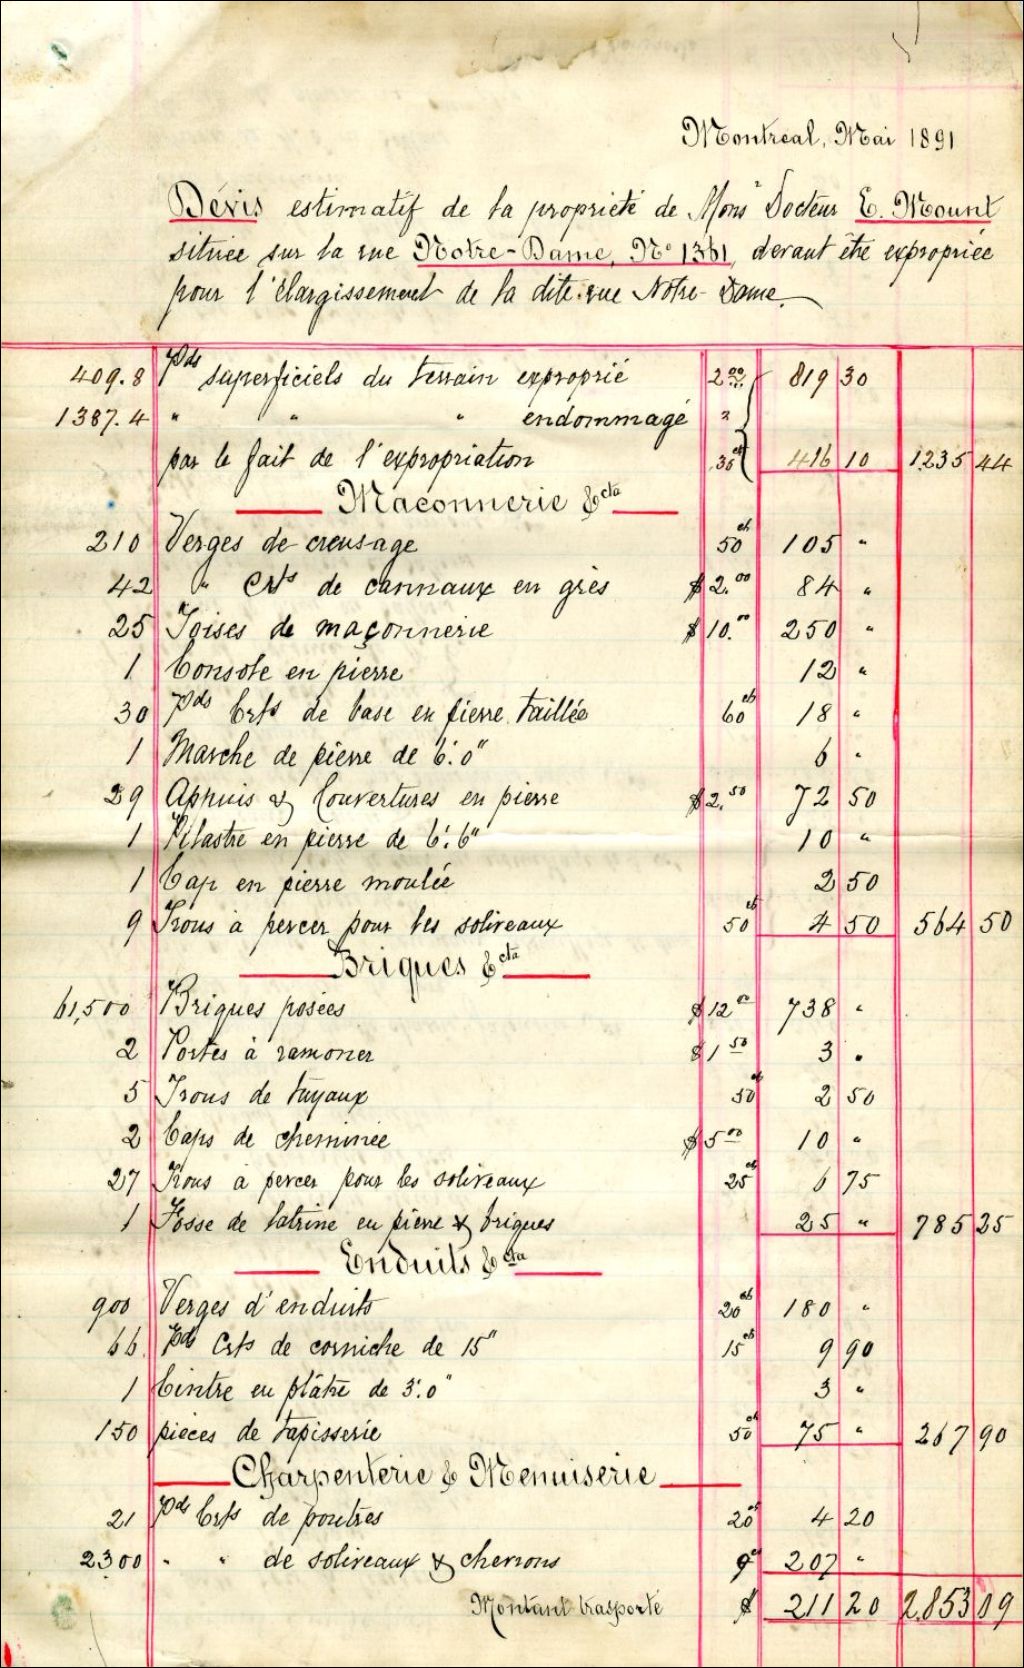 Montreal, Mai 1891
Dévis estimatif de la propriété de Mons Docteur E. Mount
située sur la rue Notre-Dame, No 1361, devant être expropriée
pour l'élargissement de la dite rue Notre-Dame.
409.8 Pds superficiels du terrain exproprié 2.00 819 30
1387.4 " " " endommagé "
par le fait de l'expropriation .30 416 10 1235 44
Maconnerie &cta
210 Verges de creusage 50 cts 105 "
42 " Crts de cannaux en grès $2.00 84 "
25 Toises de maçonnerie $10.00 250 "
1 Console en pierre 12 "
30 Pds Crts de base en pierre taillée 60 cts 18 "
1 Marche de pierre de 6'.0" 6 "
29 Appuis & Couvertures en pierre $2.50 72 50
1 Pilastre en pierre de 6'.6" 10 "
1 Cap en pierre moulée 2 50
9 Trous à percer pour les soliveaux 50 cts 4 50 564 50
Briques &cta
61,500 Briques posées $12 00 738 "
2 Portes à ramoner $1 50 3 "
5 Trous de tuyaux 50 cts 2 50
2 Caps de cheminée $5 00 10 "
27 Trous à percer pour les soliveaux 25 cts 6 75
1 Fosse de latrine en pierre & briques 25 " 785 25
Enduits &cta
900 Verges d'enduits 20 cts 180 "
66 Pds Crts de corniche de 15" 15 cts 9 90
1 Cintre en plâtre de 3'.0" 3 "
150 pièces de tapisserie 50 cts 75 " 267 90
Charpenterie & Menuiserie
21 Pds Crts de poutres 20 cts 4 20
2300 " " de soliveaux & chevrons 9 cts 207 "
Montant trasporté $ 211 20 2,853 09